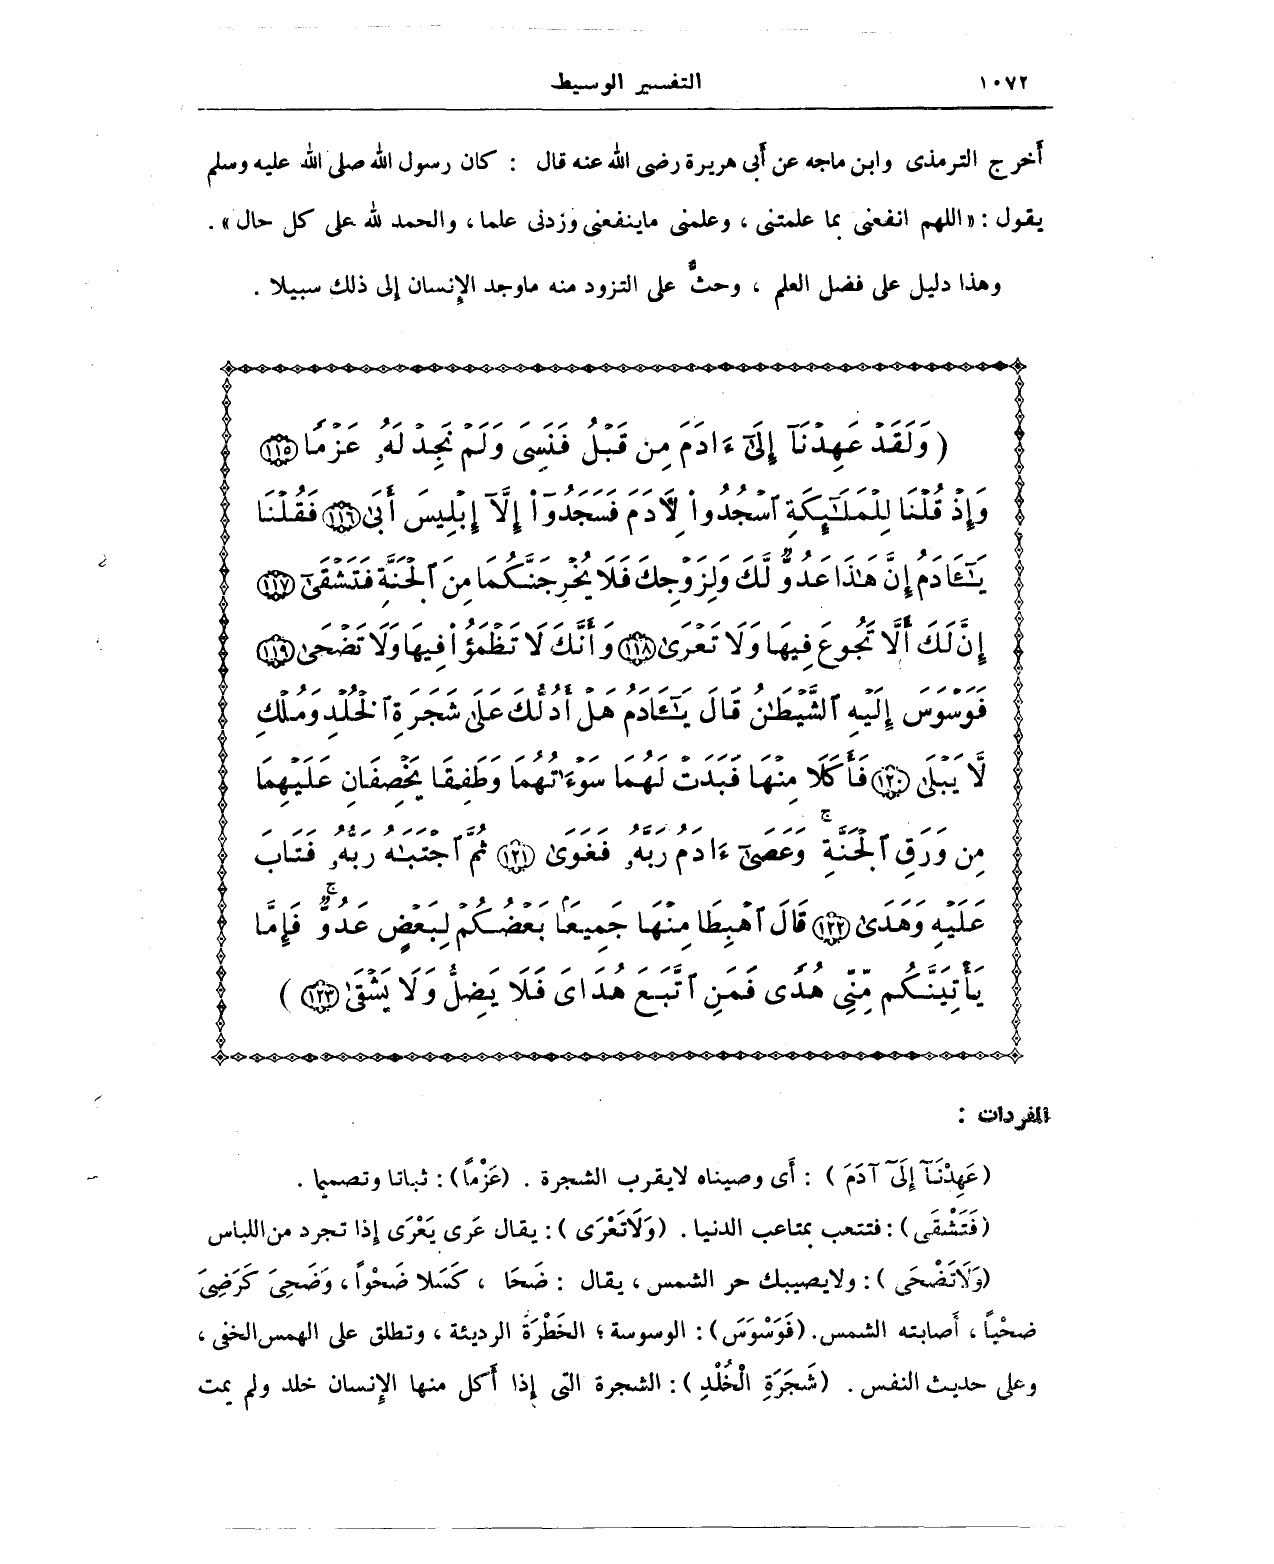 ١٠٧٢
التفسير الوسيط
أخرج الترمذى وابن ماجه عن أبى هريرة رضى الله عنه قال : كان رسول الله صلى الله عليه وسلم
يقول : «اللهم انفعنى بما علمتنى ، وعلمنى ماينفعنى وزدنى علما ، والحمد لله على كل حال» .
وهذا دليل على فضل العلم ، وحثٌّ على التزود منه ماوجد الإنسان إلى ذلك سبيلا .
(وَلَقَدْ عَهِدْنَآ إِلَىٰٓ ءَادَمَ مِن قَبْلُ فَنَسِىَ وَلَمْ نَجِدْ لَهُۥ عَزْمًا ١١٥
وَإِذْ قُلْنَا لِلْمَلَٰٓئِكَةِ ٱسْجُدُوا۟ لِءَادَمَ فَسَجَدُوٓا۟ إِلَّآ إِبْلِيسَ أَبَىٰ ١١٦ فَقُلْنَا
يَٰٓـَٔادَمُ إِنَّ هَٰذَا عَدُوٌّ لَّكَ وَلِزَوْجِكَ فَلَا يُخْرِجَنَّكُمَا مِنَ ٱلْجَنَّةِ فَتَشْقَىٰٓ ١١٧
إِنَّ لَكَ أَلَّا تَجُوعَ فِيهَا وَلَا تَعْرَىٰ ١١٨ وَأَنَّكَ لَا تَظْمَؤُا۟ فِيهَا وَلَا تَضْحَىٰ ١١٩
فَوَسْوَسَ إِلَيْهِ ٱلشَّيْطَٰنُ قَالَ يَٰٓـَٔادَمُ هَلْ أَدُلُّكَ عَلَىٰ شَجَرَةِ ٱلْخُلْدِ وَمُلْكٍ
لَّا يَبْلَىٰ ١٢٠ فَأَكَلَا مِنْهَا فَبَدَتْ لَهُمَا سَوْءَٰتُهُمَا وَطَفِقَا يَخْصِفَانِ عَلَيْهِمَا
مِن وَرَقِ ٱلْجَنَّةِ ۚ وَعَصَىٰٓ ءَادَمُ رَبَّهُۥ فَغَوَىٰ ١٢١ ثُمَّ ٱجْتَبَٰهُ رَبُّهُۥ فَتَابَ
عَلَيْهِ وَهَدَىٰ ١٢٢ قَالَ ٱهْبِطَا مِنْهَا جَمِيعًۢا بَعْضُكُمْ لِبَعْضٍ عَدُوٌّ ۖ فَإِمَّا
يَأْتِيَنَّكُم مِّنِّى هُدًى فَمَنِ ٱتَّبَعَ هُدَاىَ فَلَا يَضِلُّ وَلَا يَشْقَىٰ ١٢٣ )
المفردات :
(عَهِدْنَآ إِلَىٓ آدَمَ ) : أى وصيناه لايقرب الشجرة . (عَزْمًا) : ثباتا وتصميما .
(فَتَشْقَى) : فتتعب بمتاعب الدنيا . (وَلَاتَعْرَى ) : يقال عَرى يَعْرَى إذا تجرد من اللباس
(وَلَاتَضْحَى ) : ولايصيبك حر الشمس ، يقال : ضَحَا ، كَسَلا ضَحْواً ، وَضَحِىَ كَرَضِىَ
ضحْياً ، أصابته الشمس . (فَوَسْوَسَ) : الوسوسة ؛ الخَطْرَةُ الرديئة ، وتطلق على الهمس الخفى ،
وعلى حديث النفس . (شَجَرَةِ الْخُلْدِ ) : الشجرة التى إذا أكل منها الإنسان خلد ولم يمت